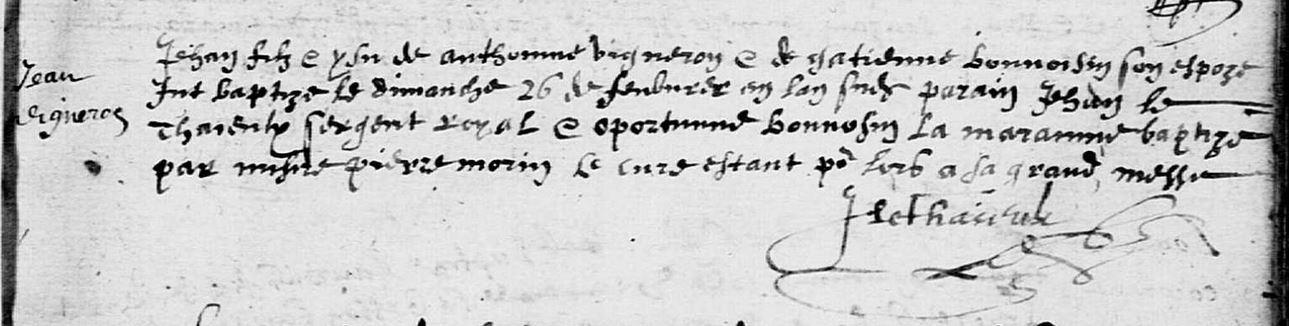 Jean
Vigneron
Jehan filz & ysu de anthoinne vigneron & de gatienne bonnoisin son espoze
fut baptize le dimanche 26 de febvrer en lan susd parain Jehan le
Thaieulx sergent royal & oportunne bonnosin la marainne baptize
par missire pierre morin le cure estant po lors a sa grand messe
J lethaieulx